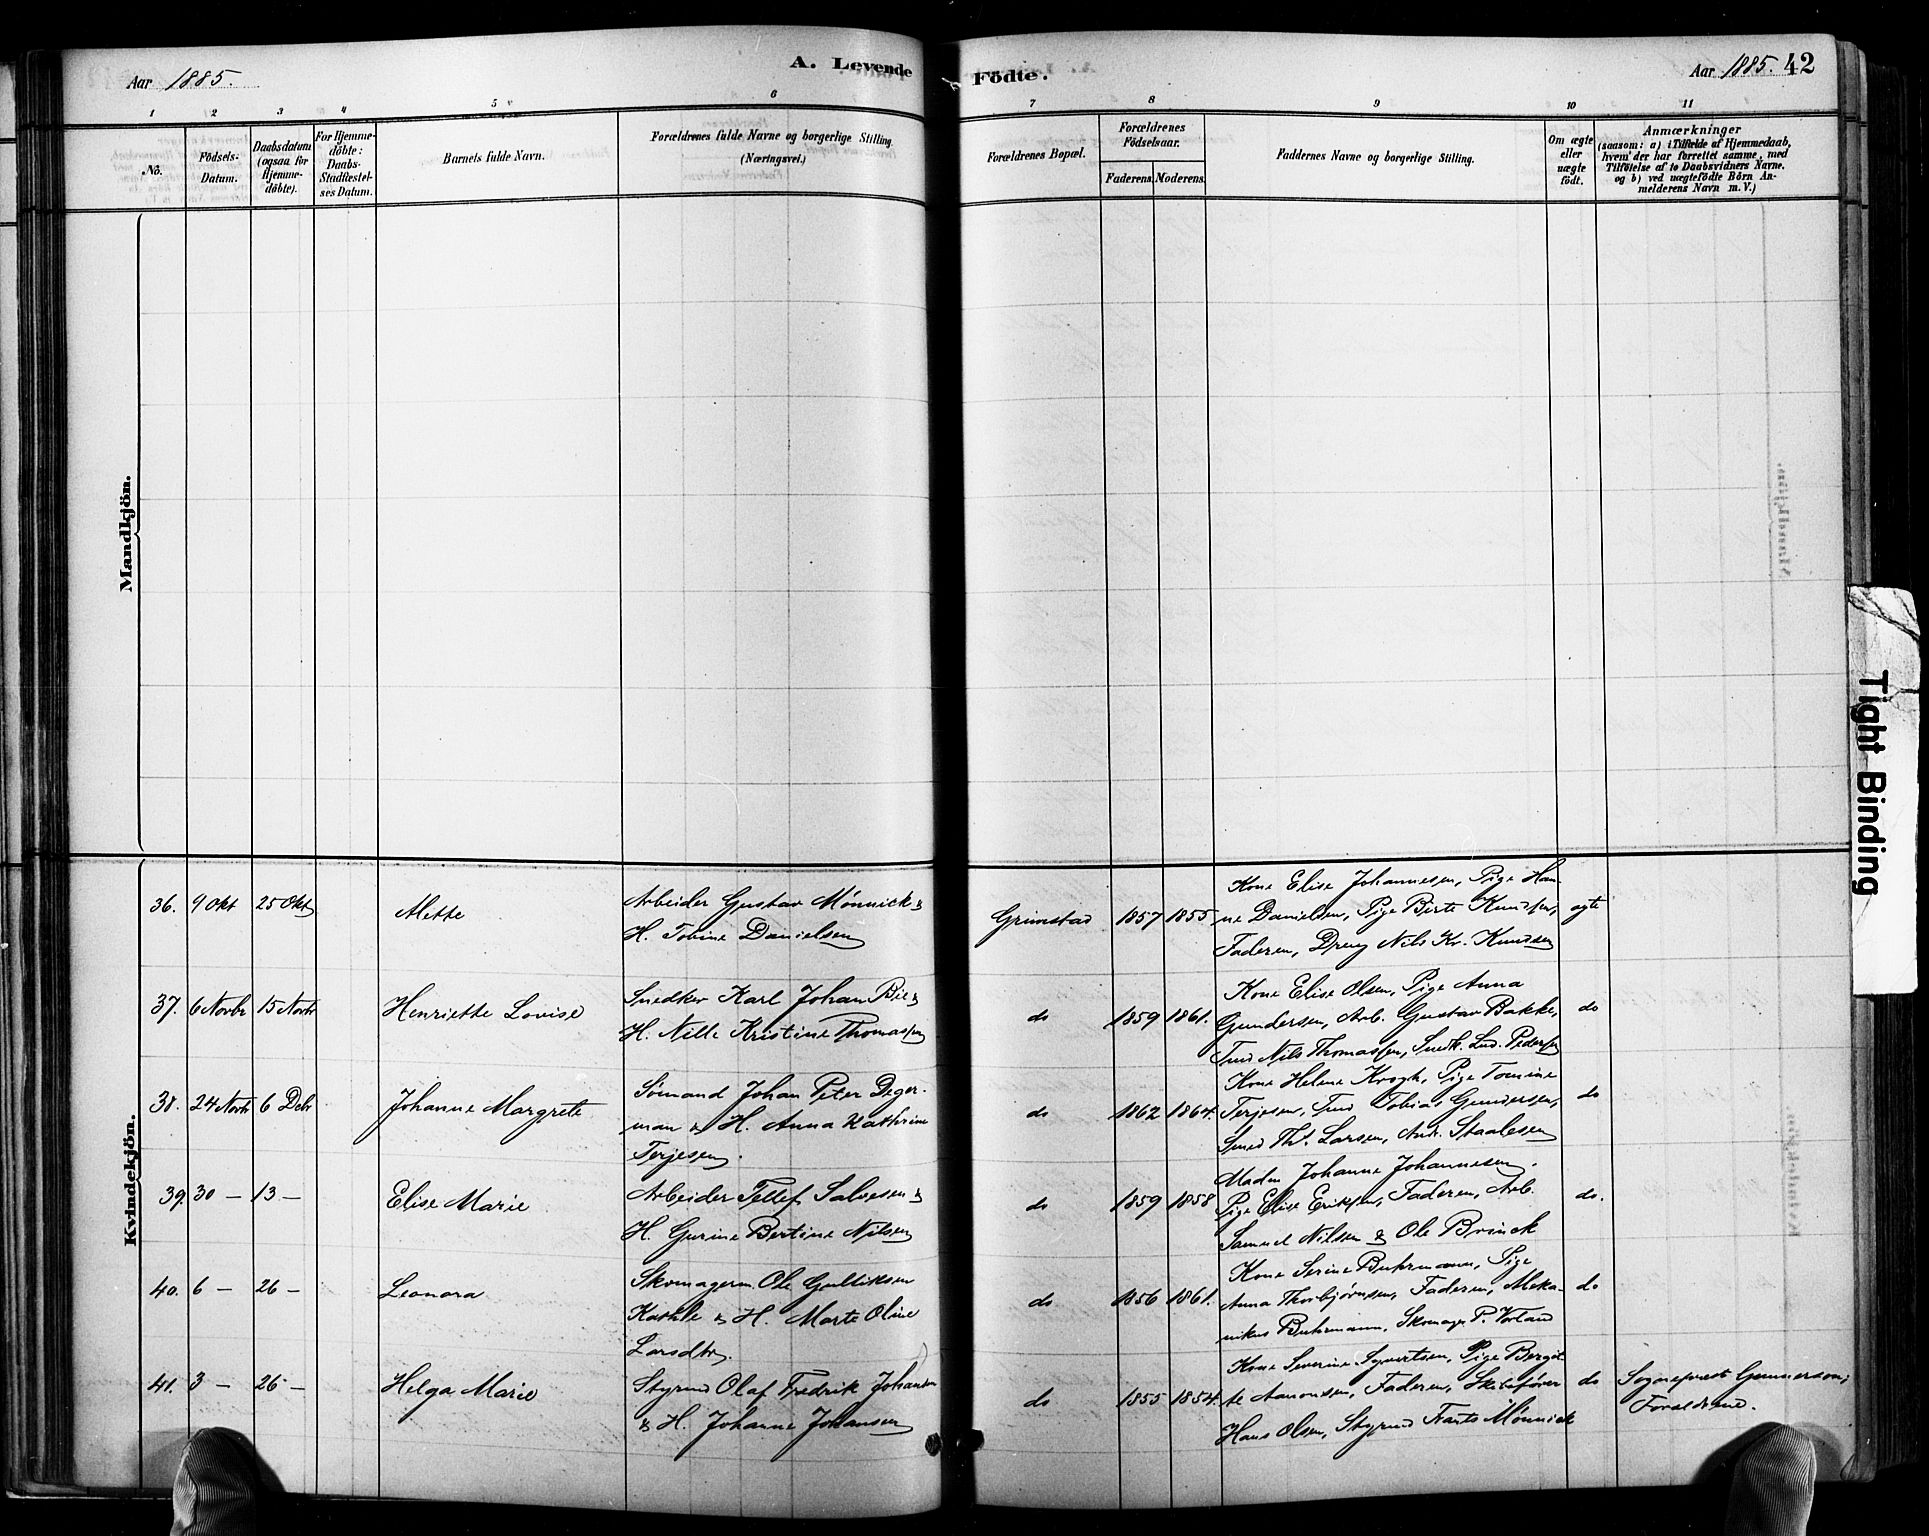 Aar 1885.
A. Levende
Födte.
Aar 1885. 42
1 2 3 4 5 6 7 8 9 10 11
No.
Födsels-
Datum.
Daabsdatum
(ogsaa for
Hjemme-
döbte).
For Hjemme-
döbte:
Daabs-
Stadfæstel-
ses Datum.
Barnets fulde Navn.
Forældrenes fulde Navne og borgerlige Stilling.
(Næringsvei.)
Forældrenes Bopæl.
Forældrenes
Födselsaar.
Faderens. Moderens.
Faddernes Navne og borgerlige Stilling.
Om ægte
eller
uægte
födt.
Anmærkninger
(saasom: a) i Tilfælde af Hjemmedaab,
hvem der har forrettet samme, med
Tilföielse af to Daabsvidners Navne.
og b) ved uægtefödte Börn An-
melderens Navn m. V.)
Mandkjön.
Kvindekjön.
36. 9 Okt 25 Okt
Alette
Arbeider Gustav Mønnick &
H. Tobine Danielsen
Grimstad 1857 1855
Kone Elise Johannesen, Pige Han-
ne Danielsen, Pige Birte Knudsen,
Faderen, Dreng Nils Kr. Knudsen
ægte
37. 6 Novbr 15 Novbr
Henriette Lovise
Snedker Karl Johan Bie &
H. Nille Kristine Thomassen
do 1859 1861.
Kone Elise Olsen, Pige Anna
Gundersen, Arb. Gustav Bakke,
Tmd Nils Thomassen, Snedk. Lud. Pedersen
do
38. 24 Novbr 6 Debr
Johanne Margrete
Sömand Johan Peter Deger-
man & H. Anna Kathrine
Terjesen.
do 1862 1864.
Kone Helene Krogh, Pige Tomine
Terjesen, Tmd Tobias Gundersen,
Smed Th. Larsen, Andr. Staalesen
do
39. 30 — 13 —
Elise Marie
Arbeider Tellef Salvesen &
H. Gurine Bertine Nilsen
do 1859 1858
Madm Johanne Johannesen.
Pige Elise Eriksen, Faderen, Arb.
Samuel Nilsen & Ole Brinck
do.
40. 6 — 26 —
Leonora
Skomagerm. Ole Gulliksen
& H. Marte Oline
Larsdtr.
do 1856 1861.
Kone Serine Buhrmann, Pige
Anna Thorbjørnsen, Faderen, Meka-
nikus Buhrmann, Skomager P. Vorland
do
41. 3 — 26 —
Helga Marie
Styrmd Olaf Fredrik Johansen
& H. Johanne Johansen
do 1855 1854.
Kone Severine Syvertsen, Pige Bergit-
te Aanonsen, Faderen, Skibsfører
Hans Olsen, Styrmd Frants Mønnick
do
Sogneprest Gunnerson;
Forældrene.
Tight Binding